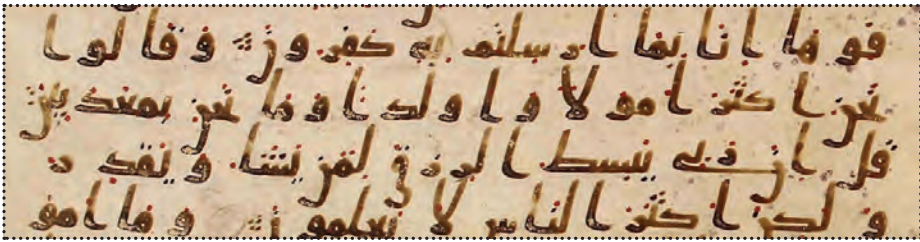 فوها انا بما ارسلتم به كفرون وقالوا
نحن اكثر امولا واولدا وما نحن بمعذبين
قل ان ربي يبسط الرزق لمن يشا ويقدر
ولكن اكثر الناس لا يعلمون وما امو